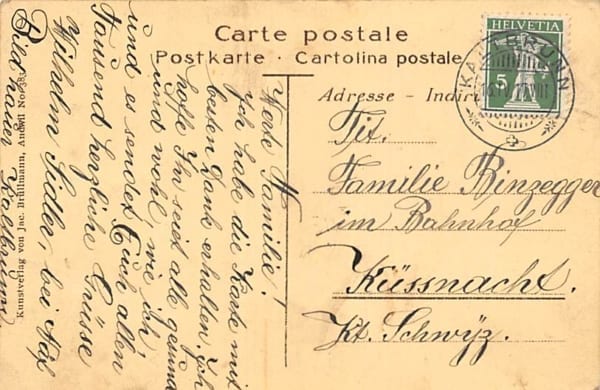 Carte postale
Postkarte · Cartolina postale
Adresse - Indir
HELVETIA
5
KALTBRUNN
Tit.
Familie Binzegger
im Bahnhof
Küssnacht.
Kt. Schwÿz.
Werte Familie!
Ich habe die Karte mit
besten Dank erhalten. Ich
hoffe Ihr seid alle gesund
und wohl, wie ich,
und es sendet Euch allen
Tausend herzliche Grüsse
Wilhelm Sidler, bei Näf
Bildhauer Kaltbrunn
Kunstverlag von Jac. Brüllmann, Andwil No.